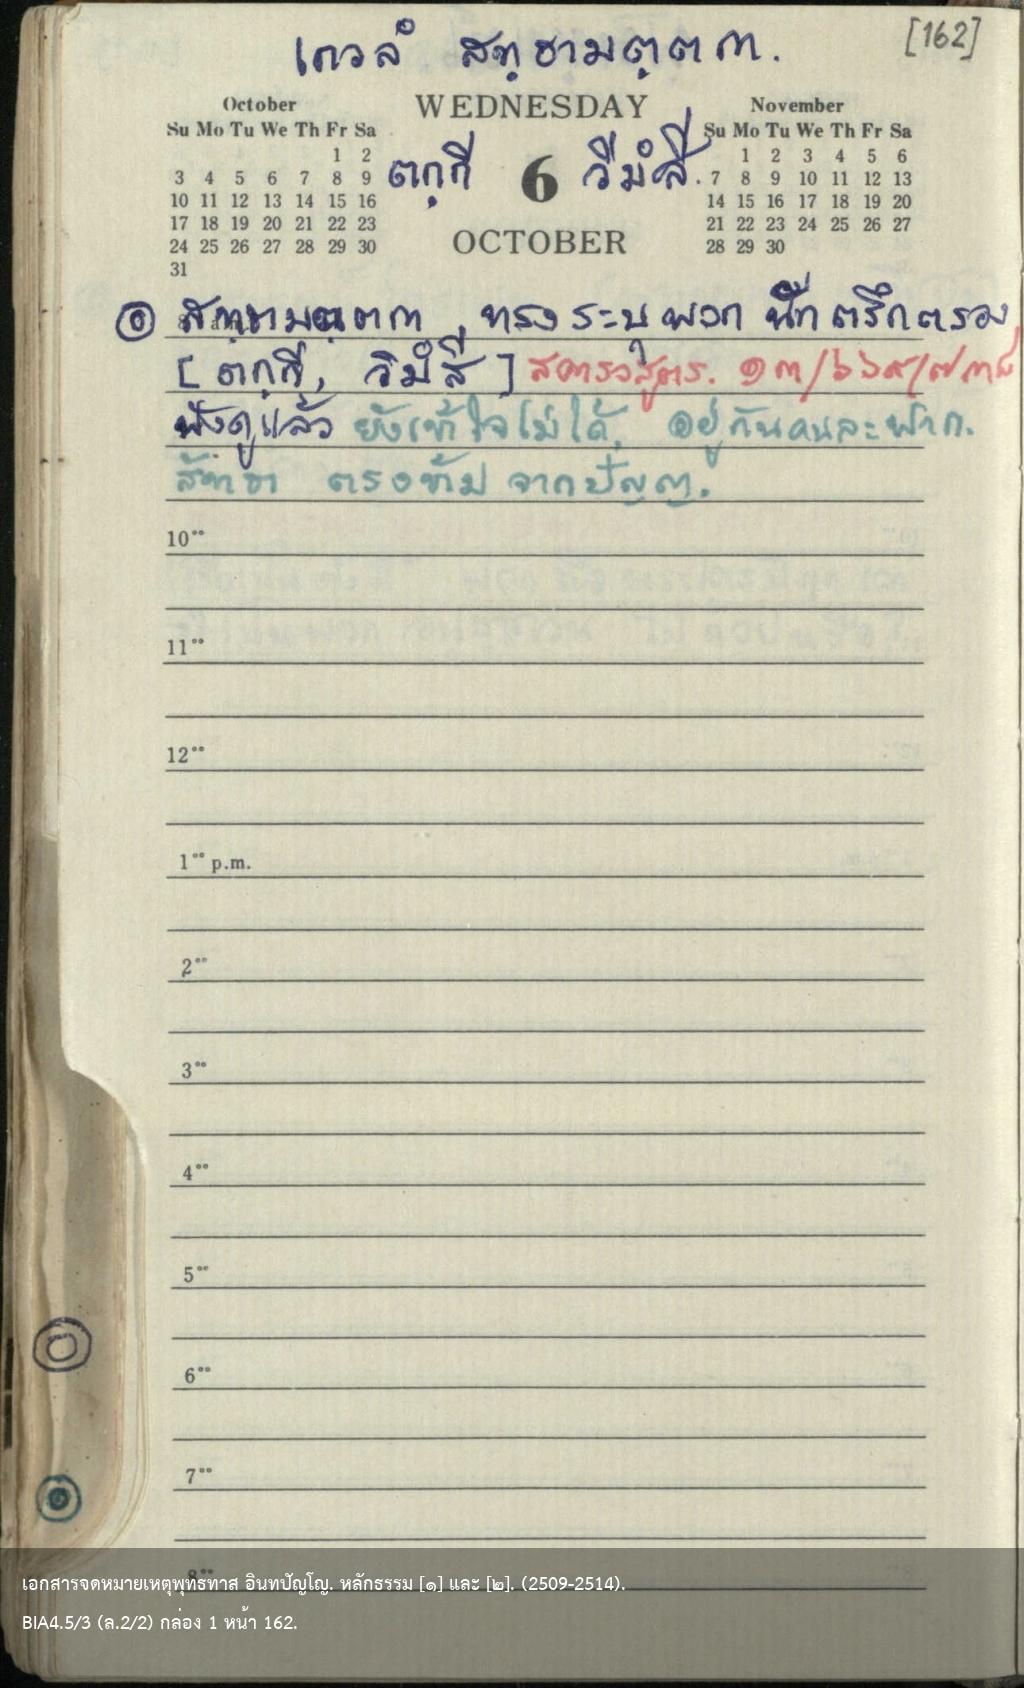 เกวลํ สทฺธามตฺตก. [162]
October WEDNESDAY November
Su Mo Tu We Th Fr Sa ตกฺกี 6 วีมํสี. Su Mo Tu We Th Fr Sa
1 2 1 2 3 4 5 6
3 4 5 6 7 8 9 7 8 9 10 11 12 13
10 11 12 13 14 15 16 14 15 16 17 18 19 20
17 18 19 20 21 22 23 OCTOBER 21 22 23 24 25 26 27
24 25 26 27 28 29 30 28 29 30
31
๏ สทฺธามตฺตก, ทรงระบุพวก นักตรึกตรอง
[ ตกฺกี, วิมํสี ] สคารวสูตร. ๑๓/๖๖๙/๗๓๘
ฟังดูแล้ว ยังเข้าใจไม่ได้. อยู่กันคนละพวก.
สัทธา ตรงข้าม จากปัญญา.
10°°
11°°
12°°
1°° p.m.
2°°
3°°
4°°
5°°
6°°
7°°
8°°
เอกสารจดหมายเหตุพุทธทาส อินทปัญโญ. หลักธรรม [๑] และ [๒]. (2509-2514).
BIA4.5/3 (ล.2/2) กล่อง 1 หน้า 162.